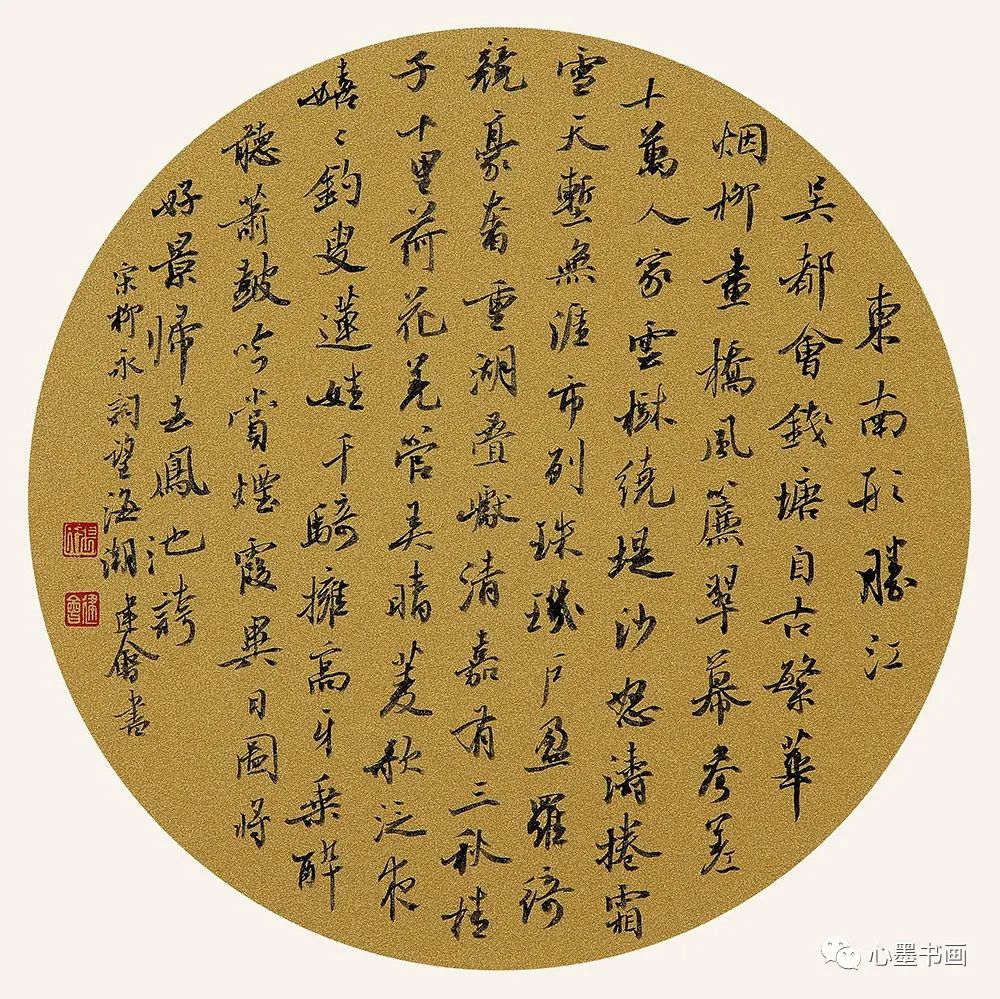 東南形勝江
吳都會錢塘自古繁華
烟柳畫橋風簾翠幕參差
十萬人家雲樹繞堤沙怒濤捲霜
雪天塹無涯市列珠璣戶盈羅綺
競豪奢重湖疊巘清嘉有三秋桂
子十里荷花羌管弄晴菱歌泛夜
嬉〻釣叟蓮娃千騎擁高牙乘醉
聽簫鼓吟賞煙霞異日圖將
好景歸去鳳池誇
宋柳永詞望海潮 建會書
張氏
建會
心墨书画